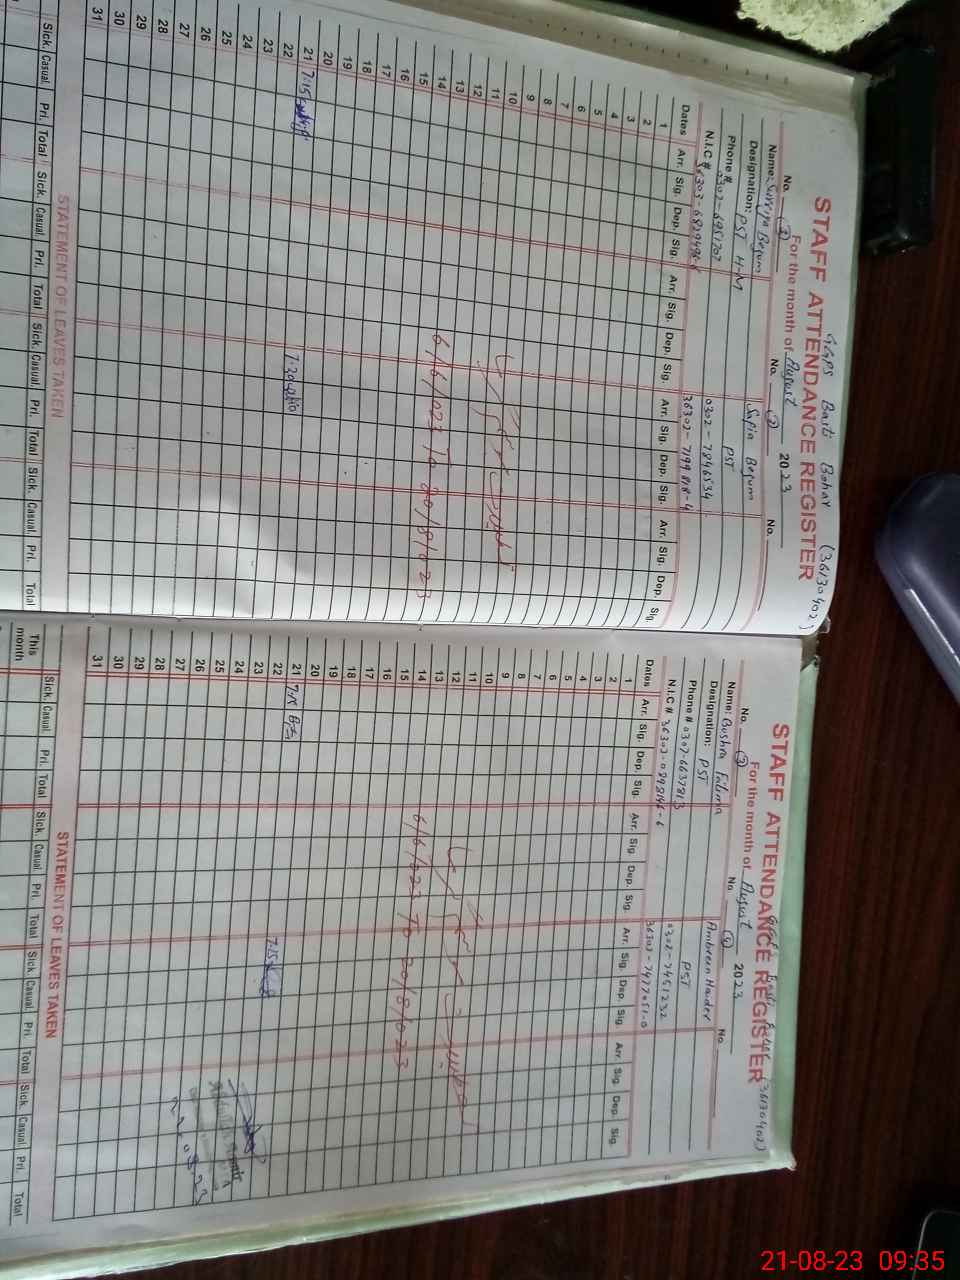 GGPS Basti Bahar (36130402)
STAFF ATTENDANCE REGISTER
For the month of August 2023
No. (1) No. (2) No.
Name: Surriya Begum Safia Begum
Designation: PST H-M PST
Phone # 0302-6951707 0302-7846534
N.I.C # 36302-7199818-4
Dates Arr. Sig. Dep. Sig. Arr. Sig. Dep. Sig. Arr. Sig. Dep. Sig. Arr. Sig. Dep. Sig.
1
2
3
4
5
6
7
8
9
10
11
12
13
14
6/6/023 To 20/8/023
15
16
17
18
19
20
21 7:15 7:20
22
23
24
25
26
27
28
29
30
31
STATEMENT OF LEAVES TAKEN
Sick. Casual. Pri. Total Sick. Casual. Pri. Total Sick. Casual. Pri. Total Sick. Casual. Pri. Total
(36130402)
STAFF ATTENDANCE REGISTER
For the month of August 2023
No. (3) No. (4) No.
Name: Bushra Fatima Ambreen Haider
Designation: PST PST
Phone # 0307-6637813 0302-7451232
N.I.C # 36302-0898146-6 36302-7477051-0
Dates Arr. Sig. Dep. Sig. Arr. Sig. Dep. Sig. Arr. Sig. Dep. Sig. Arr. Sig. Dep. Sig.
1
2
3
4
5
6
7
8
9
10
11
12
13
14
6/6/023 To 20/8/023
15
16
17
18
19
20
21 7:15 7:15
22
23
24
25
26
27
28
29
30
31
STATEMENT OF LEAVES TAKEN
This month Sick. Casual. Pri. Total Sick. Casual. Pri. Total Sick. Casual. Pri. Total Sick. Casual. Pri. Total
21-08-23 09:35